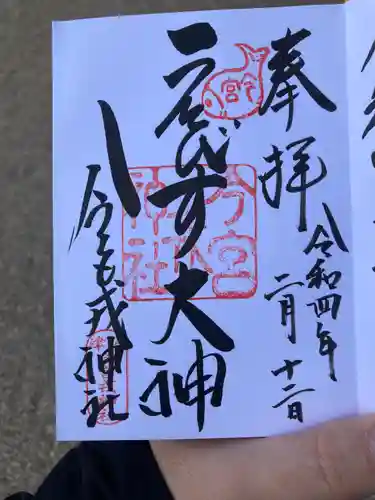 奉拝
令和四年
二月十二日
ゑびす大神
今宮戎神社
今宮
神社